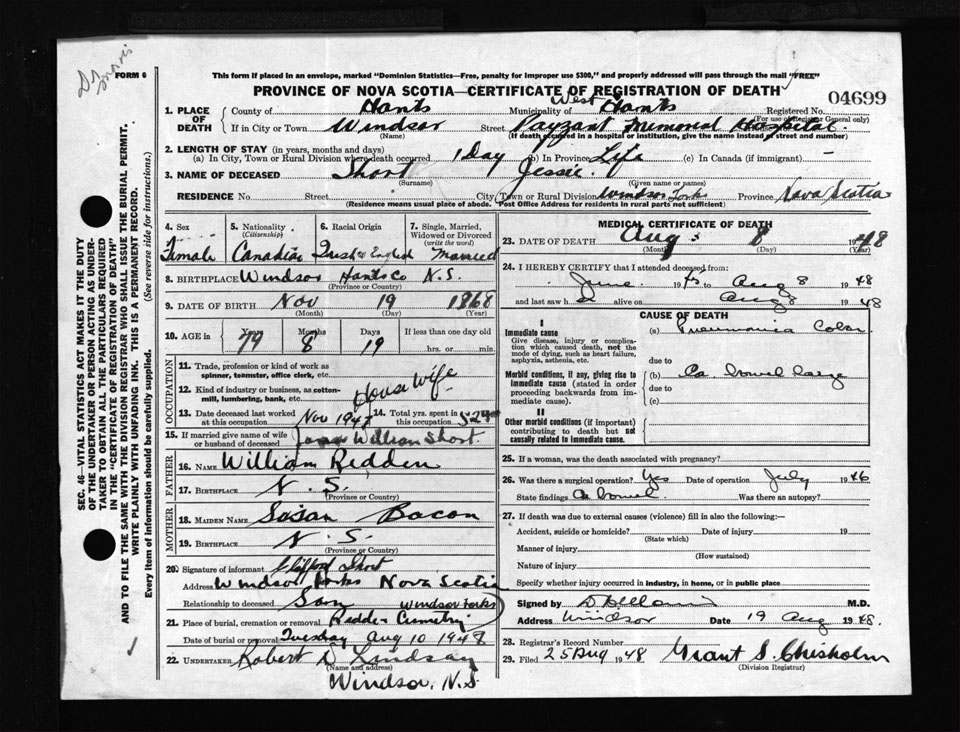 Dr Morris
FORM 6
This form if placed in an envelope, marked "Dominion Statistics—Free, penalty for improper use $300," and properly addressed will pass through the mail "FREE"
PROVINCE OF NOVA SCOTIA—CERTIFICATE OF REGISTRATION OF DEATH
04699
1. PLACE OF DEATH County of Hants Municipality of West Hants Registered No.
(For use of Registrar General only)
If in City or Town Windsor Street Payzant Memorial Hospital.
(Name) (If death occurred in a hospital or institution, give the name instead of street and number)
2. LENGTH OF STAY (in years, months and days)
(a) In City, Town or Rural Division where death occurred 1 Day (b) In Province Life (c) In Canada (if immigrant) —
3. NAME OF DECEASED Short Jessie.
(Surname) (Given name or names)
RESIDENCE No. Street City, Town or Rural Division Windsor Forks Province Nova Scotia
(Residence means usual place of abode. "Post Office Address for residents in rural parts not sufficient)
4. Sex 5. Nationality (Citizenship) 6. Racial Origin 7. Single, Married, Widowed or Divorced (write the word)
Female Canadian Irish & English Married
8. BIRTHPLACE Windsor Hants Co N.S.
(Province or Country)
9. DATE OF BIRTH Nov 19 1868
(Month) (Day) (Year)
10. AGE in Years Months Days If less than one day old
79 8 19 hrs. or min.
OCCUPATION
11. Trade, profession or kind of work as spinner, teamster, office clerk, etc.
12. Kind of industry or business, as cotton-mill, lumbering, bank, etc. House Wife
13. Date deceased last worked at this occupation Nov 1947 14. Total yrs. spent in this occupation 52
15. If married give name of wife or husband of deceased William Short.
FATHER
16. NAME William Redden
17. BIRTHPLACE N.S.
(Province or Country)
MOTHER
18. MAIDEN NAME Susan Bacon
19. BIRTHPLACE N.S.
(Province or Country)
20. Signature of informant Clifford Short
Address Windsor Forks Nova Scotia
Relationship to deceased Son
21. Place of burial, cremation or removal Redden Cemetry Windsor Forks
Date of burial or removal Tuesday Aug 10 1948
22. UNDERTAKER Robert D Lindsay
(Name and address)
Windsor, N.S
MEDICAL CERTIFICATE OF DEATH
23. DATE OF DEATH Aug 8 1948
(Month) (Day) (Year)
24. I HEREBY CERTIFY that I attended deceased from:
June 19 to Aug 8 1948
and last saw h alive on Aug 8 1948
CAUSE OF DEATH
I
Immediate cause (a) Pneumonia
Give disease, injury or complication which caused death, not the mode of dying, such as heart failure, asphyxia, asthenia, etc.
due to
Morbid conditions, if any, giving rise to immediate cause (stated in order proceeding backwards from immediate cause).
(b) Ca bowel large
due to
(c)
II
Other morbid conditions (if important) contributing to death but not causally related to immediate cause.
25. If a woman, was the death associated with pregnancy?
26. Was there a surgical operation? Yes Date of operation July 1946
State findings Ca bowel Was there an autopsy?
27. If death was due to external causes (violence) fill in also the following:—
Accident, suicide or homicide? Date of injury 19
(State which)
Manner of injury
(How sustained)
Nature of injury
Specify whether injury occurred in industry, in home, or in public place
Signed by M.D.
Address Windsor Date 19 Aug 1948.
28. Registrar's Record Number
29. Filed 25 Aug 1948 Grant S. Chisholm
(Division Registrar)
SEC. 46—VITAL STATISTICS ACT MAKES IT THE DUTY
OF THE UNDERTAKER OR PERSON ACTING AS UNDER-
TAKER TO OBTAIN ALL THE PARTICULARS REQUIRED
IN THE "CERTIFICATE OF REGISTRATION OF DEATH"
AND TO FILE THE SAME WITH THE DIVISION REGISTRAR WHO SHALL ISSUE THE BURIAL PERMIT.
WRITE PLAINLY WITH UNFADING INK. THIS IS A PERMANENT RECORD.
Every item of information should be carefully supplied. (See reverse side for instructions.)